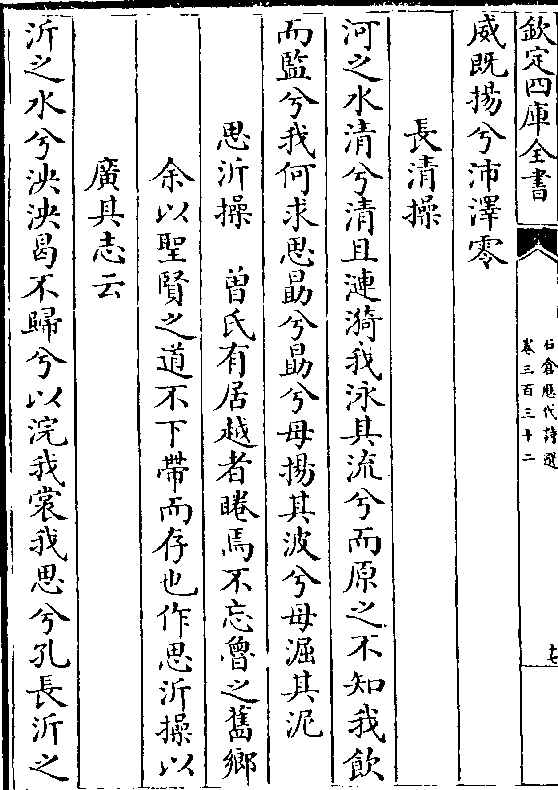 欽定四庫全書
石倉歴代詩選
卷三百三十二
十七
威既揚兮沛澤零
長清操
河之水清兮清且漣漪我泳其流兮而原之不知我飲
而監兮我何求思勗兮勗兮毋揚其波兮毋淈其泥
思沂操　曾氏有居越者睠焉不忘魯之舊鄉
余以聖賢之道不下帶而存也作思沂操以
廣其志云
沂之水兮泱泱曷不歸兮以浣我裳我思兮孔長沂之